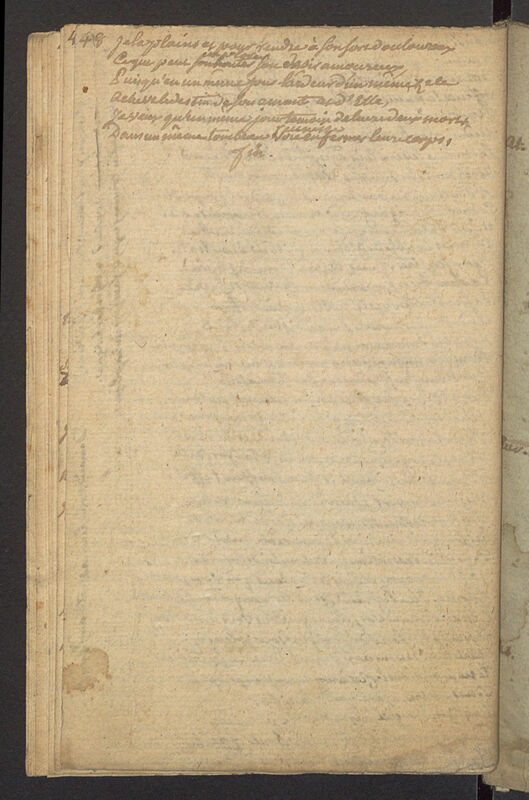 448
je la plains et pour rendre à son sort douloureux
Ce que peut souhaiter son amoureux
Puisqu'en un même jour l'ardeur d'un même zele
Acheve le destin de son amant et d'Elle
Je veux qu'un même jour temoin de leurs deux morts
Dans un même tombeau voie enfermer leurs corps.
fin.